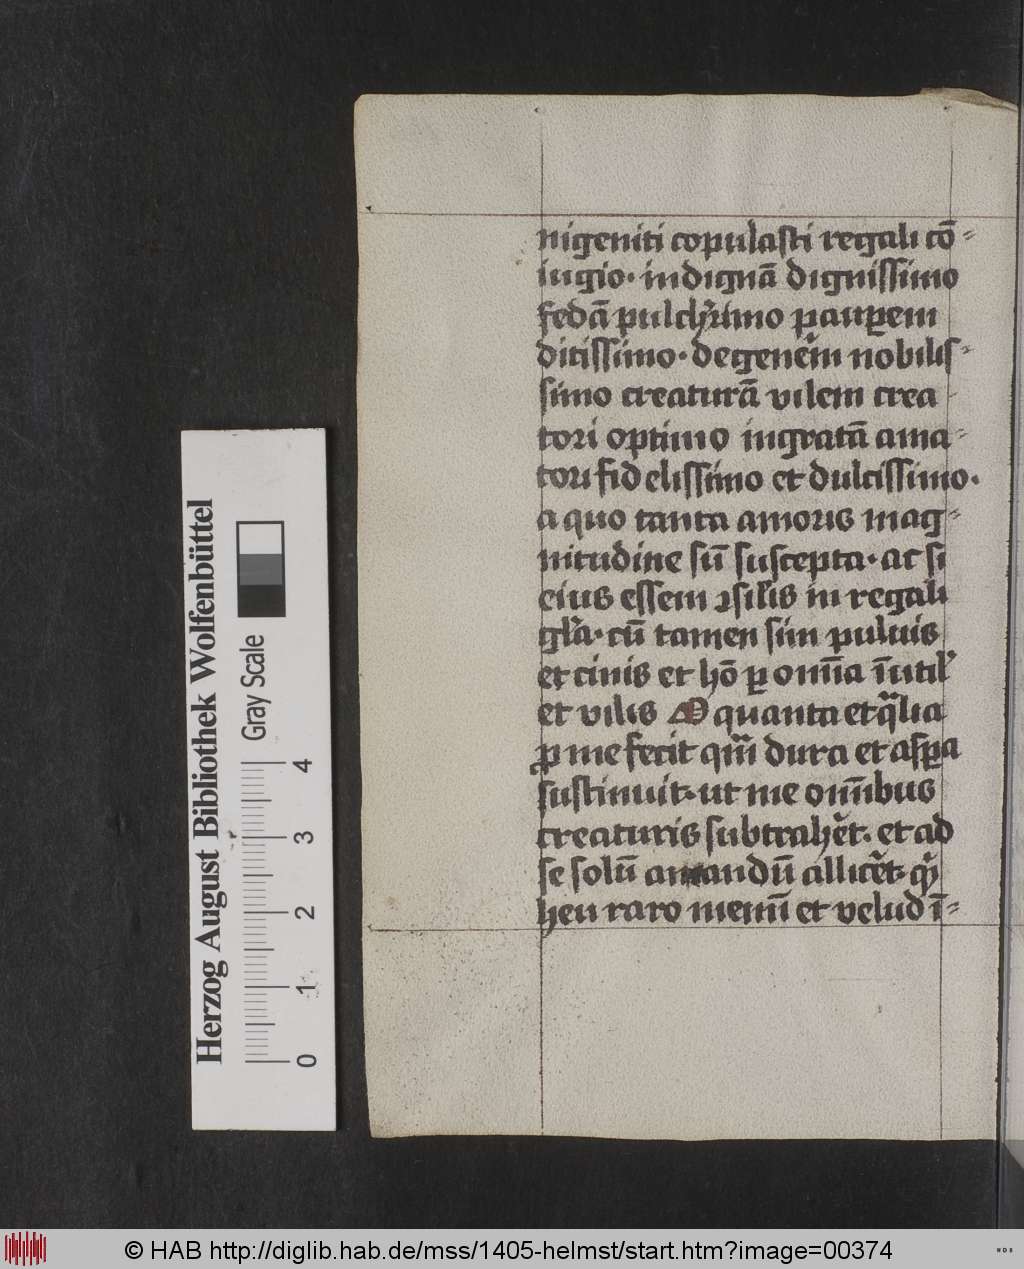 nigeniti copulasti regali cō-
iugio· indignā dignissimo
fedā pulchͥrimo paupem
ditissimo· degenēm nobilis-
simo creaturā vilem crea-
tori optimo ingratā ama-
tori fidelissimo et dulcissimo·
a quo tanta amoris mag-
nitudine sū suscepta· ac si
eius essem ꝯsilis in regali
gla· cū tamen sim puluis
et cinis et hō ꝑ omīa īutil
et vilis O quanta et qͣlia
ꝓ me fecit qm̄ dura et aspa
sustinuit· ut me om̄ibus
creaturis subtrahet· et ad
se solū amandū allicet· qͥ
heu raro memī et velud ī-
Herzog August Bibliothek Wolfenbüttel
Gray Scale
0 1 2 3 4
© HAB http://diglib.hab.de/mss/1405-helmst/start.htm?image=00374